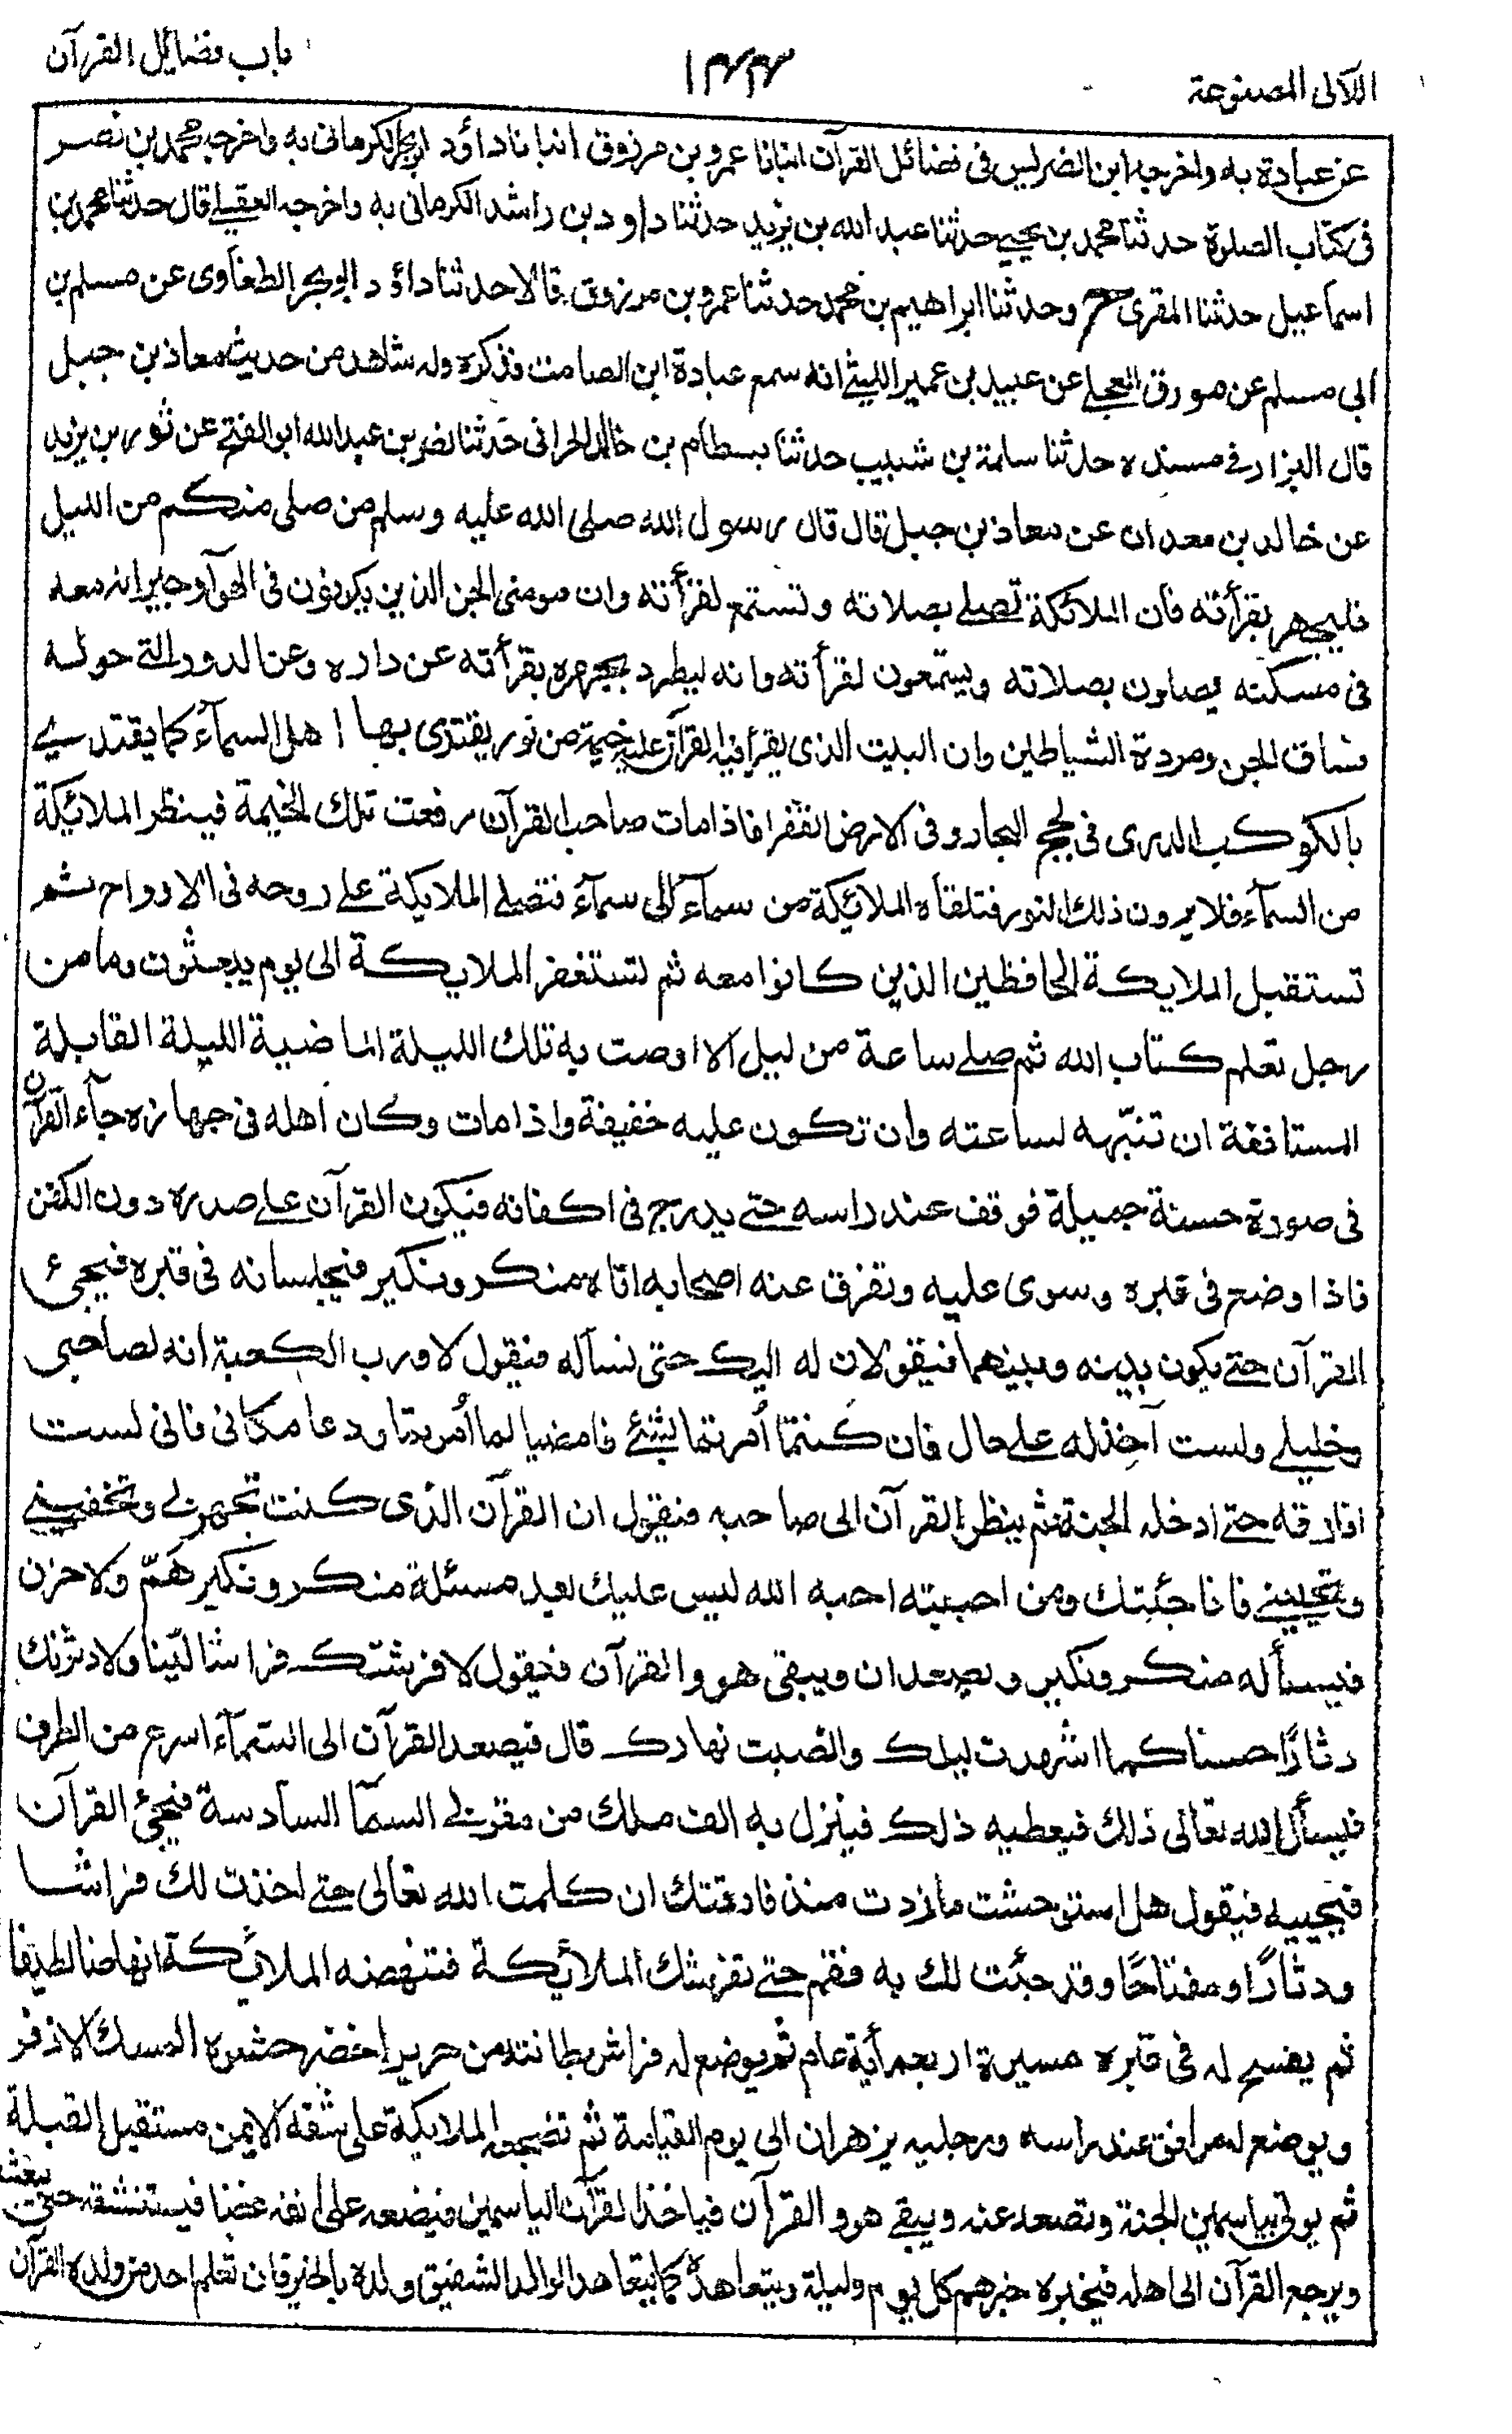 باب فضائل القرآن
١٢٣
اللآلى المصنوعة
عن عبادة به واخرجه ابن الضريس فى فضائل القرآن انبانا عمرو بن مرزوق انبانا داؤد ابو بحر الكرمانى به واخرجه محمد بن نصر
فى كتاب الصلوة حدثنا محمد بن يحيى حدثنا عبد الله بن يزيد حدثنا داود بن راشد الكرمانى به واخرجه العقيلى قال حدثنا محمد بن
اسماعيل حدثنا المقرى ح وحدثنا ابراهيم بن محمد حدثنا عمرو بن مرزوق قالا حدثنا داؤد ابو بحر الطفاوى عن مسلم بن
ابى مسلم عن مورق العجلى عن عبيد بن عمير الليثى انه سمع عبادة ابن الصامت فذكره وله شاهد من حديث معاذ بن جبل
قال البزار فى مسنده حدثنا سلمة بن شبيب حدثنا بسطام بن خالد الحرانى حدثنا نصر بن عبد الله ابو الفتح عن ثور بن يزيد
عن خالد بن معدان عن معاذ بن جبل قال قال رسول الله صلى الله عليه وسلم من صلى منكم من الليل
فليجهر بقرأته فان الملائكة تصلى بصلاته وتستمع لقرأته وان مومنى الجن الذين يكونون فى الهوآ وجيرانه معه
فى مسكنه يصلون بصلاته ويستمعون لقرأته وانه ليطرد بجهره بقرأته عن داره وعن الدور التى حوله
فساق الجن ومردة الشياطين وان البيت الذى يقرأ فيه القرآن عليه خيمة من نور يقتدى بها اهل السمآء كما يقتدى
بالكوكب الدرى فى لجج البحار وفى الارض القفر فاذا مات صاحب القرآن رفعت تلك الخيمة فينظر الملائيكة
من السمآء فلا يرون ذلك النور فتلقاه الملائيكة من سمآء الى سمآء فتصلى الملايكة على روحه فى الارواح ثم
تستقبل الملايكة الحافظين الذين كانوا معه ثم تستغفر الملايكة الى يوم يبعثون وما من
رجل تعلم كتاب الله ثم صلى ساعة من ليل الا اوصت به تلك الليلة الماضية الليلة القابلة
المستانفة ان تنبّهه لساعته وان تكون عليه خفيفة واذا مات وكان اهله فى جهازه جآء القرآن
فى صورة حسنة جميلة فوقف عند راسه حتى يدرج فى اكفانه فيكون القرآن على صدره دون الكفن
فاذا وضع فى قبره وسوى عليه وتفرق عنه اصحابه اتاه منكر ونكير فيجلسانه فى قبره فيجىء
القرآن حتى يكون بينه وبينهما فيقولان له اليك حتى نسأله فيقول لا ورب الكعبة انه لصاحبى
وخليلى ولست آخذله على حال فان كنتما أمرتما بشئ فامضيا لما أمرتما ودعا مكانى فانى لست
افارقه حتى ادخله الجنة ثم ينظر القرآن الى صاحبه فيقول ان القرآن الذى كنت تجهر بى وتخفينى
وتحبنى فانا حبيبك ومن احببته احبه الله ليس عليك بعد مسئلة منكر ونكير هَمّ ولا حزن
فيسأله منكر ونكير ويصعدان ويبقى هو والقرآن فيقول لافرشنّك فراشا ليّنا ولادثرنك
دثارًا حسنا كما اسهرت ليلك وانصبت نهارك قال فيصعد القرآن الى السّمآء اسرع من الطرف
فيسأل الله تعالى ذلك فيعطيه ذلك فينزل به الف ملك من مقربى السمآ السادسة فيجئ القرآن
فيجيبه فيقول هل استوحشت مازدت منذ فارقتك ان كلمت الله تعالى حتى اخذت لك فراشا
ودثارًا ومفتاحًا وقد جئت لك به فقم حتى تفرشك الملائيكة فتنهضه الملائيكة انهاضا لطيفا
ثم يفسح له فى قبره مسيرة اربعمأية عام ثم يوضع له فراش بطانته من حرير اخضر حشوه المسك الاذفر
ويوضع له مرافق عند راسه ورجليه يزهران الى يوم القيامة ثم تضجعه الملايكة على شقه الايمن مستقبل القبلة
ثم يوتى بياسمين الجنة وتصعد عنه ويبقى هو والقرآن فياخذ القرآن الياسمين فيضعه على انفه غضا فيستنشقه حتى يبعث
ويرجع القرآن الى اهله فيخبره خبرهم كل يوم وليلة ويتعاهده كما يتعاهد الوالد الشفيق ولده بالخير فان تعلم احد من ولده القرآن